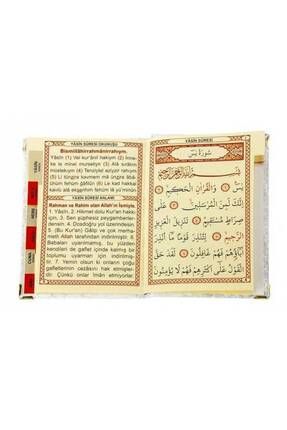 YÂSİN SÛRESİ OKUNUŞU
Bismillâhirrahmânirrahıym.
Yâsîn (1) Vel kur'ânil hakiym (2) İnne-
ke le minel murseliyn (3) Alâ sırâtın
müstekıym (4) Tenziylel aziyzir rahıym
(5) Li tünzira kavmem mâ ünzira âbâ
ühüm fehüm ğâfilûn (6) Le kad hakkal
kavlü alâ ekserihim fehüm lâ yü'minûn
YÂSİN SÛRESİ ANLAMI
Rahman ve Rahîm olan Allah'ın İsmiyle.
1. Yâsîn. 2. Hikmet dolu Kur'an hakkı
için. 3. Sen şüphesiz peygamberler-
densin. 4. Dosdoğru yol üzerindesin.
5. (Bu Kur'an) Gâlip ve çok merha-
metli Allah tarafından indirilmiştir. 6.
Babaları uyarılmamış, bu yüzden
kendileri de gaflet içinde kalmış bir
toplumu uyarman için indirilmiştir.
7. Yemin olsun ki onların çoğu
gafletlerinin cezasını hak etmişler-
dir. Çünkü onlar îmân etmiyorlar.
YÂSİN SÛRESİ
سُورَةُ يٰسٓ
بِسْمِ اللّٰهِ الرَّحْمٰنِ الرَّحِيمِ
يٰسٓ ۞ وَالْقُرْاٰنِ الْحَكِيمِ ۞
اِنَّكَ لَمِنَ الْمُرْسَلِينَ ۞ عَلٰى
صِرَاطٍ مُسْتَقِيمٍ ۞ تَنْزِيلَ الْعَزِيزِ
الرَّحِيمِ ۞ لِتُنْذِرَ قَوْمًا مَا اُنْذِرَ
اٰبَاؤُهُمْ فَهُمْ غَافِلُونَ ۞ لَقَدْ حَقَّ
الْقَوْلُ عَلٰى اَكْثَرِهِمْ فَهُمْ لَا يُؤْمِنُونَ